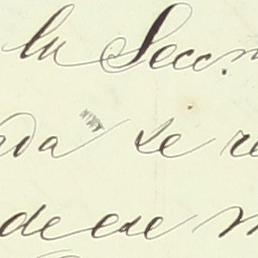 la Secc.
ada se re
de ese m